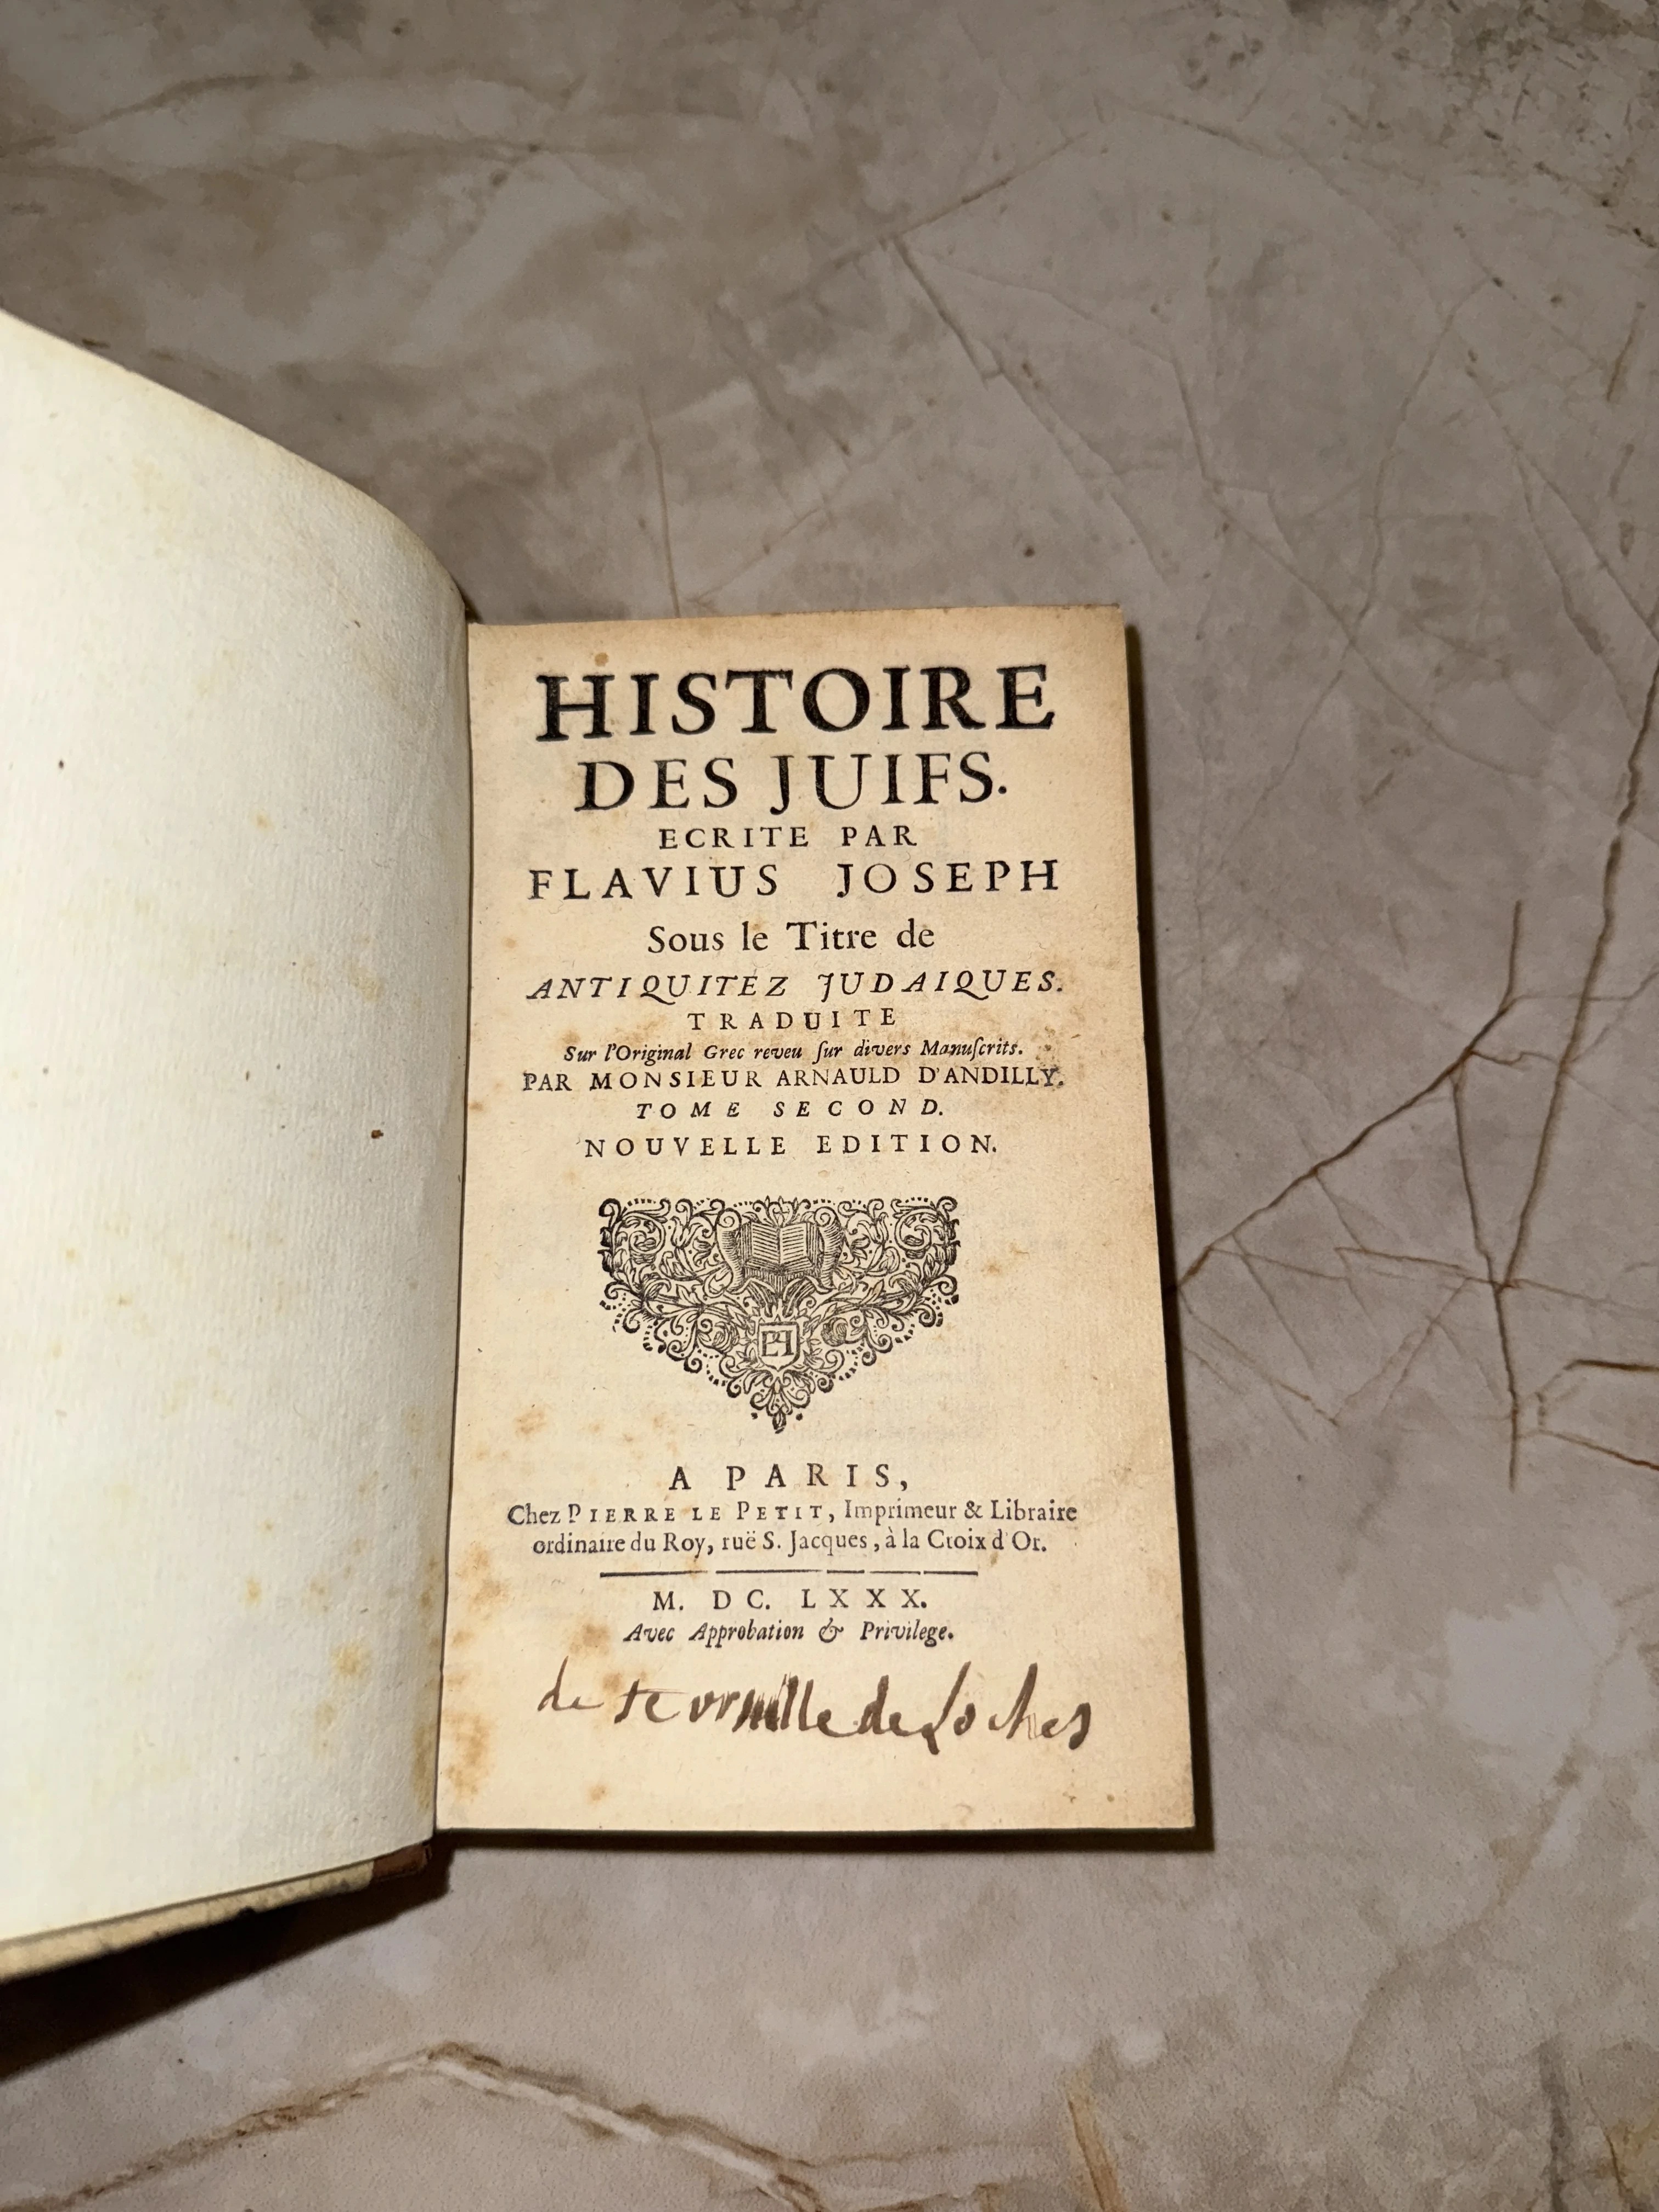 HISTOIRE
DES JUIFS.
ECRITE PAR
FLAVIUS JOSEPH
Sous le Titre de
ANTIQUITEZ JUDAIQUES.
TRADUITE
Sur l'Original Grec reveu ſur divers Manuſcrits.
PAR MONSIEUR ARNAULD D'ANDILLY.
TOME SECOND.
NOUVELLE EDITION.
A PARIS,
Chez PIERRE LE PETIT, Imprimeur & Libraire
ordinaire du Roy, ruë S. Jacques, à la Croix d'Or.
M. DC. LXXX.
Avec Approbation & Privilege.
de de Loches